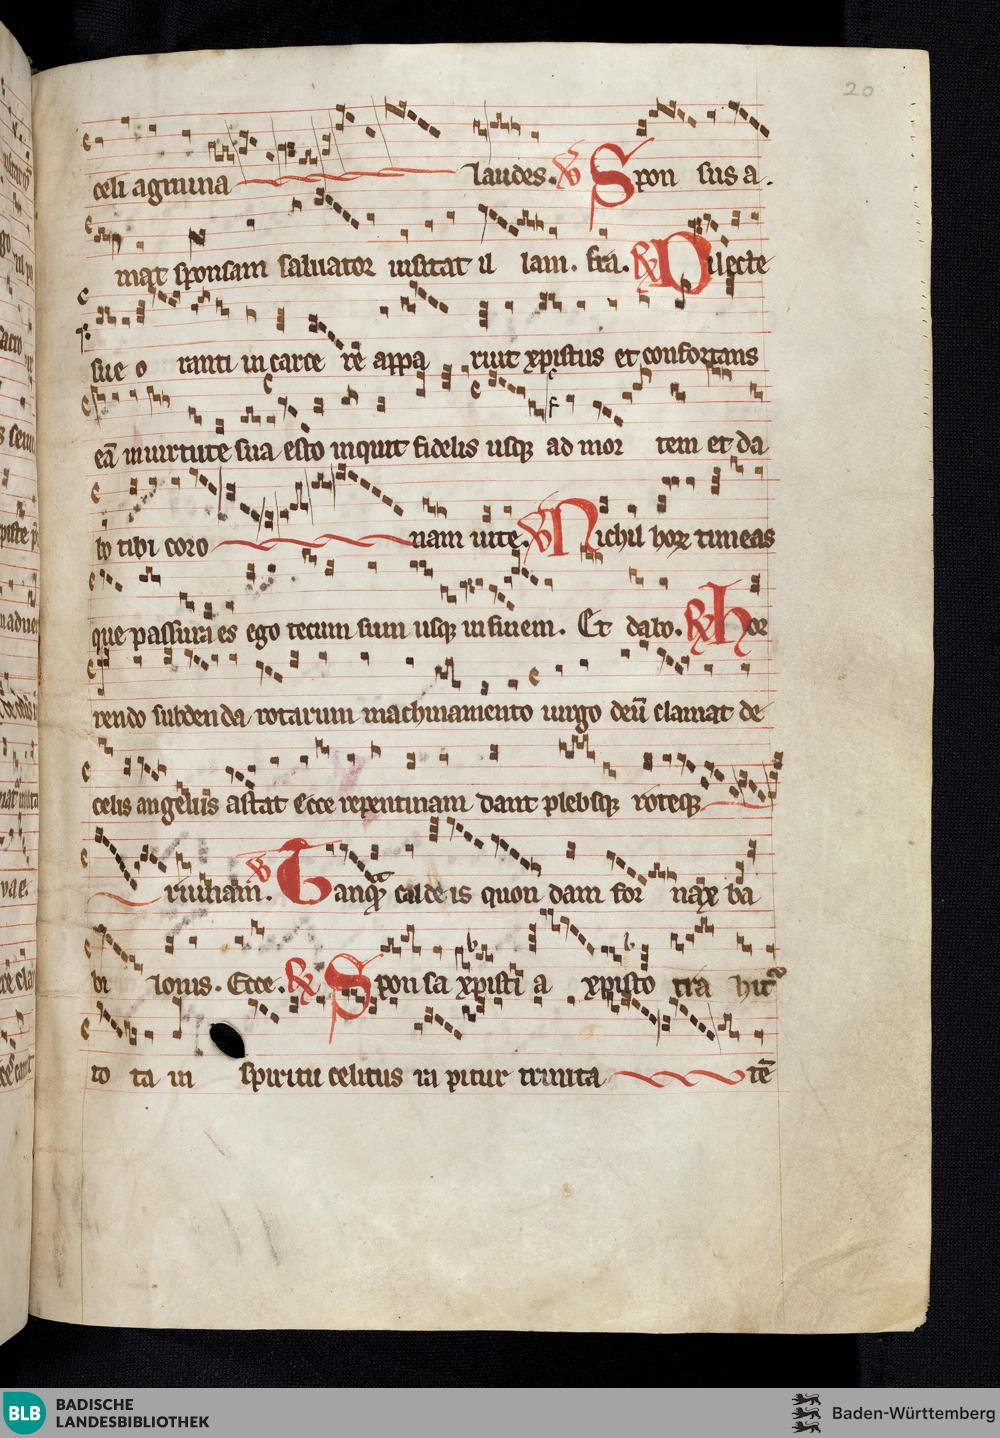 20
celi agmina laudes. V Spon sus a.
mat sponsam saluator uisitat il lam. fra. R Dilecte
sue o ranti in carce re appa ruit xpistus et confortans
eā in uirtute sua esto inquit fidelis usq ad mor tem et da
bo tibi coro nam uite. V Nichil horz timeas
que passura es ego tecum sum usq in finem. Et dabo. R hor
rendo subdenda rotarum machinamento uirgo deū clamat de
celis angelus astat Ecce repentinam dant plebsq roteq
ruinam. V Tanq calde is quon dam for nax ba
bi lonis. Ecce. R Spon sa xpisti a xpisto tra hit
to ta in spiritu celitus ra pitur trinita tē
BLB BADISCHE
LANDESBIBLIOTHEK
Baden-Württemberg